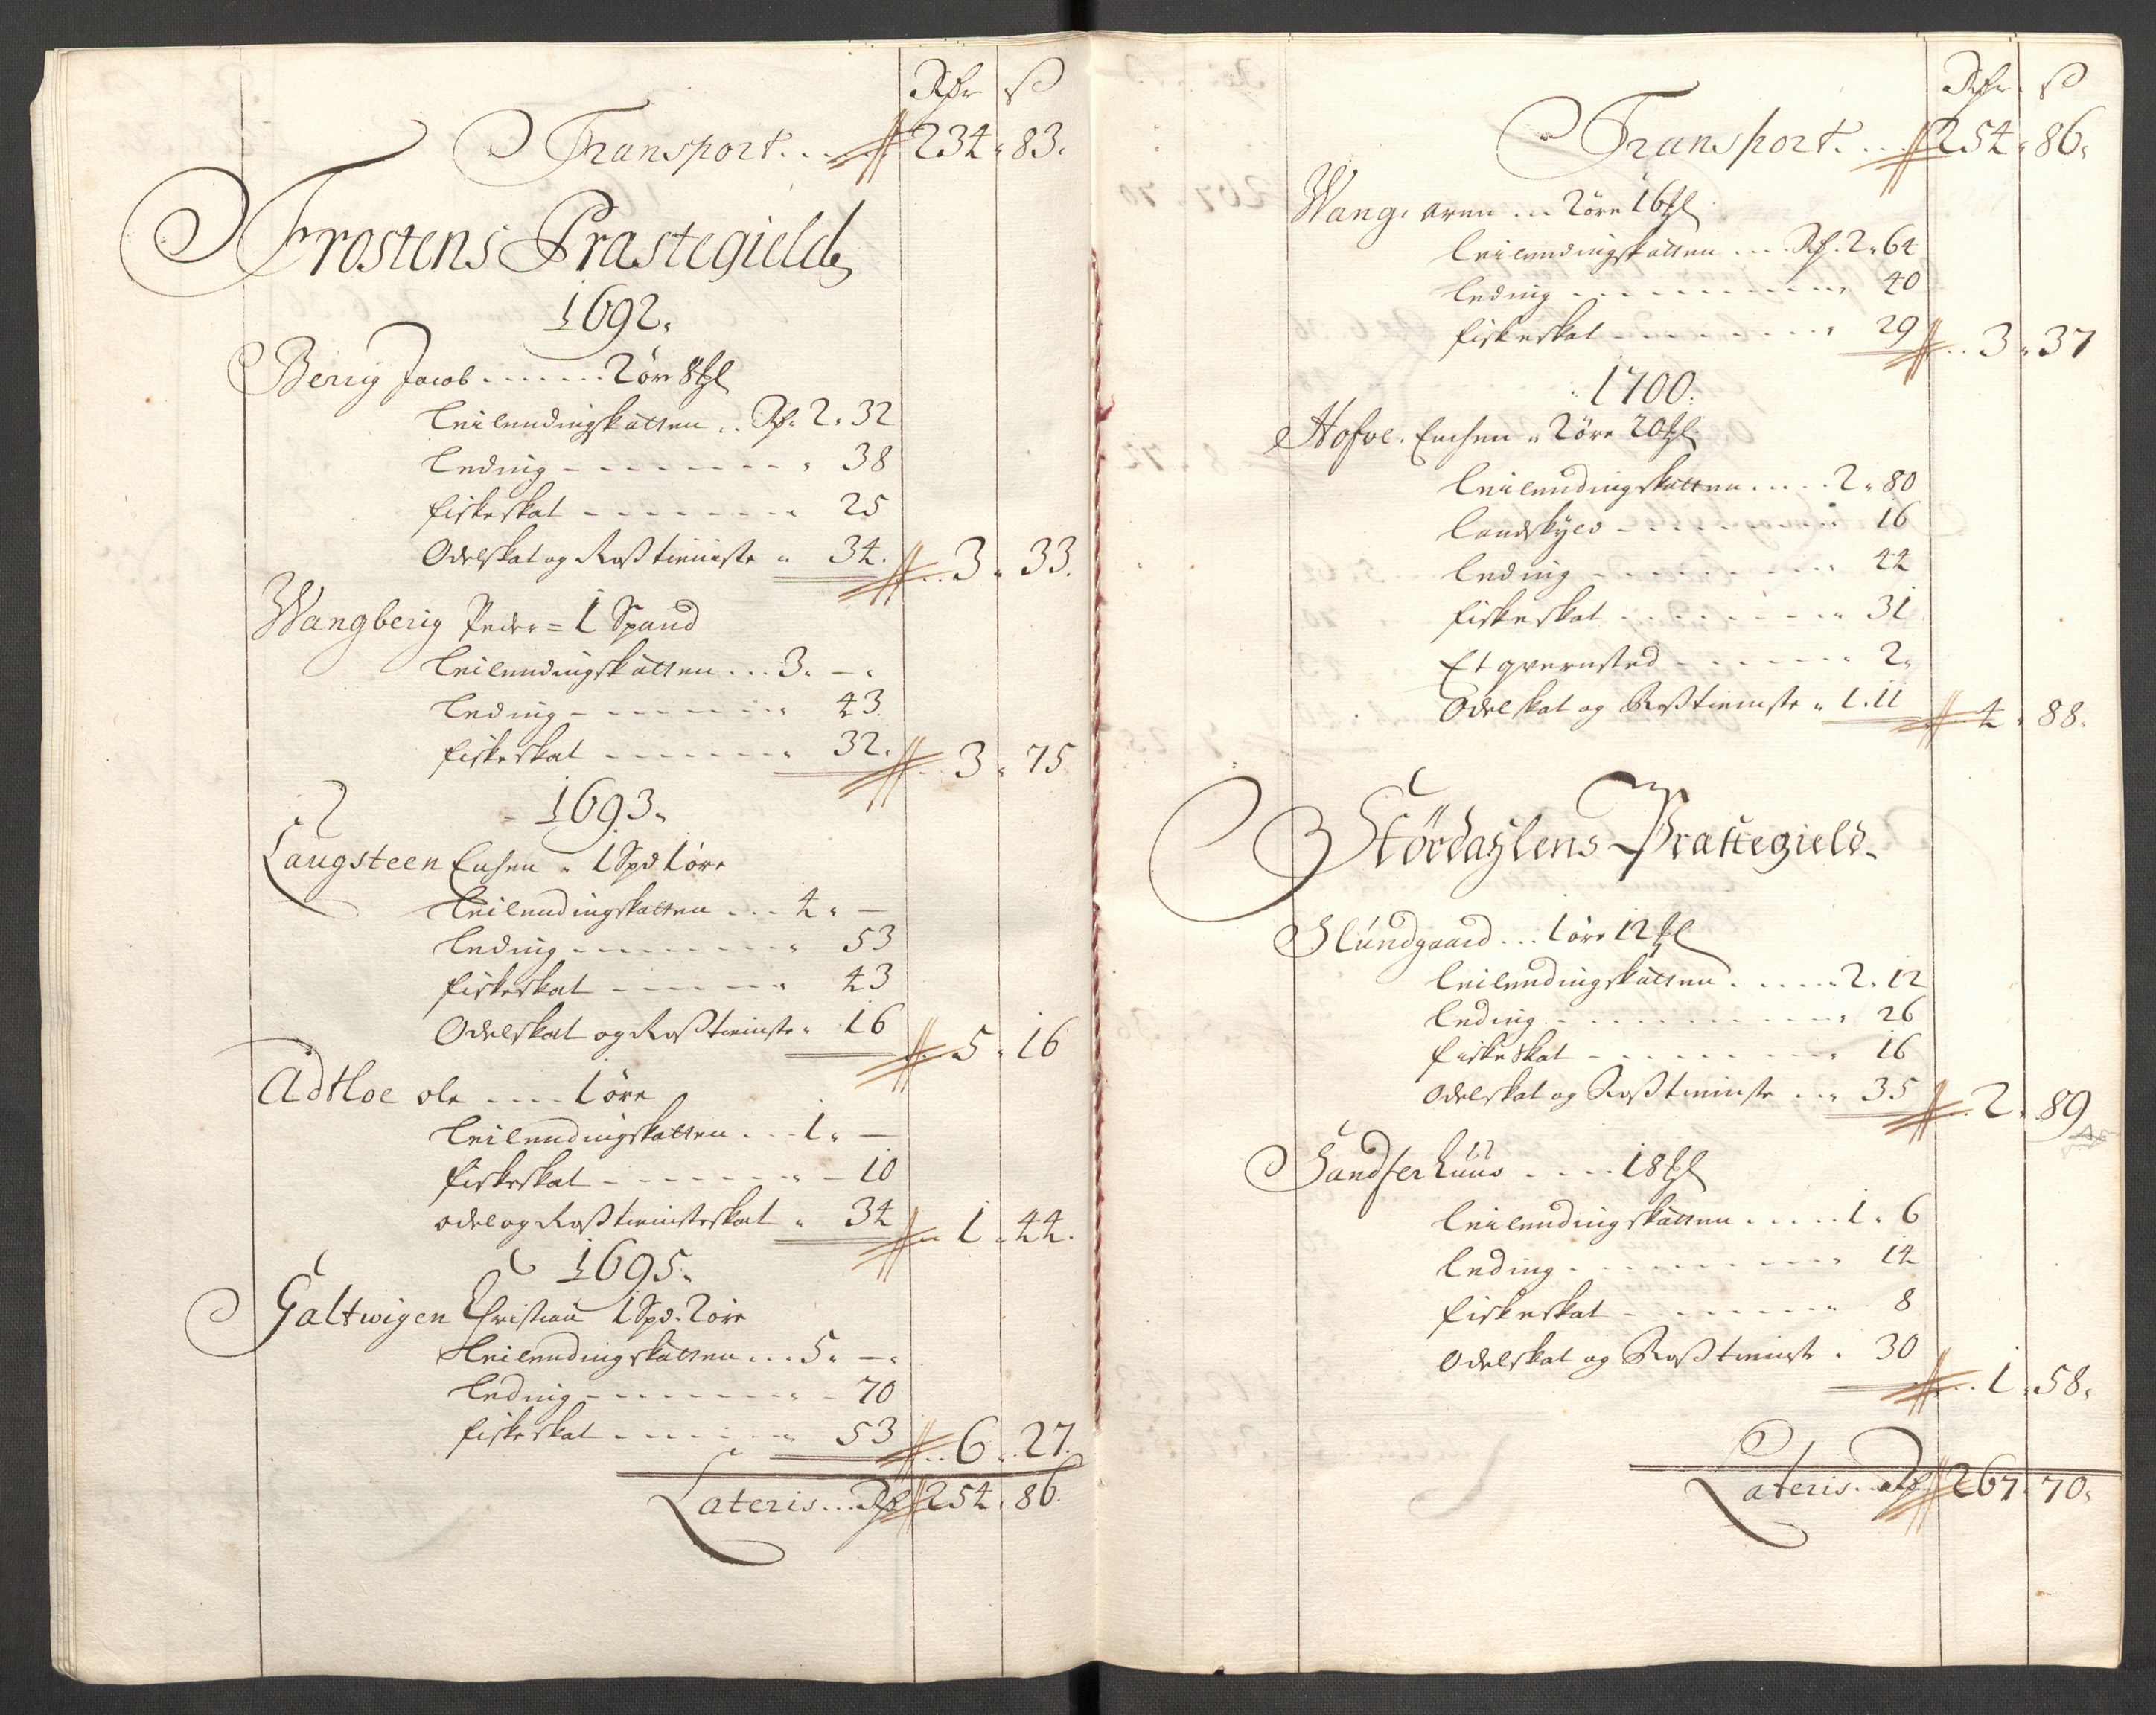 Rdr ß
Transport. . . . 234 " 83.
Frostens Præstegield
1692.
Berrig Jacob . . . . . . . 2 öre 8 Ml
Leilendingskatten . . Rdr 2 " 32
Leding - - - - - - - " 38
fiskeskat - - - - - - - " 25
Odelskat og Roßtienniste " 34. . . 3 " 33.
Wangberig Peder = 1 Spand
Leilendingskatten . . . 3. - "
Leding - - - - - - - " 43.
fiskeskat - - - - - - - " 32. . . 3 " 75
1693.
Langsteen Enchen " 1 Spd 1 öre
Leilendingskatten . . . 4 " -
Leding - - - - - - - - " 53
fiskeskat - - - - - " 43
Odelskat og Roßtieniste " 16 . . 5 " 16
Adtloe ole . . . . 1 öre
Leilendingskatten . . . 1 " -
fiskeskat - - - - - - - " - 10
odel og Roßtienisteskat " 34 " 1 " 44.
1695.
Galtwigen Christian 1 Spd. 2 öre
Leilendingskatten . . . 5 " - "
Leding - - - - - - - - " - 70
fiskeskat - - - - - - " 53 . . 6 . . 27.
Lateris . . . Rdr 254 " 86.
Rdr ß
Transport. . . . 254 " 86 "
Wang. aren . . . 2 öre 16 Ml
Leilendingskatten . . . . Rdr. 2 " 64
Leding - - - - - - - - - - " 40
fiskeskat - - - - - - - - " 29 . . 3 " 37
1700.
Hofve. Enchen " 2 öre 20 Ml.
Leilendingskatten . . . . . 2 " 80
Landskyld - - - - - - - " 16
Leding - - - - - - - - - " 44
fiskeskat - - - - - - - - " 31
Et qvernsted - - - - - - " 2 "
Odelskat og Roßtieniste " 1. 11 . . 4 " 88.
Stördahlens Præstegield.
Hlundgaard . . . 1 öre 12 Ml
Leilendingskatten . . . . . . 2. 12
Leding - - - - - - - - - - " 26
fiskeskat - - - - - - - - - " 16
odelskat og Roßtieniste . . " 35 . . 2 " 89
Sandferhuus . . . . 18 Ml
Leilendingskatten . . . . . 1 " 6
Leding - - - - - - - - - " 14
fiskeskat - - - - - - - " 8
Odelskat og Roßtieniste . 30
. . . 1 " 58 "
Lateris . . Rdr 267 " 70 "